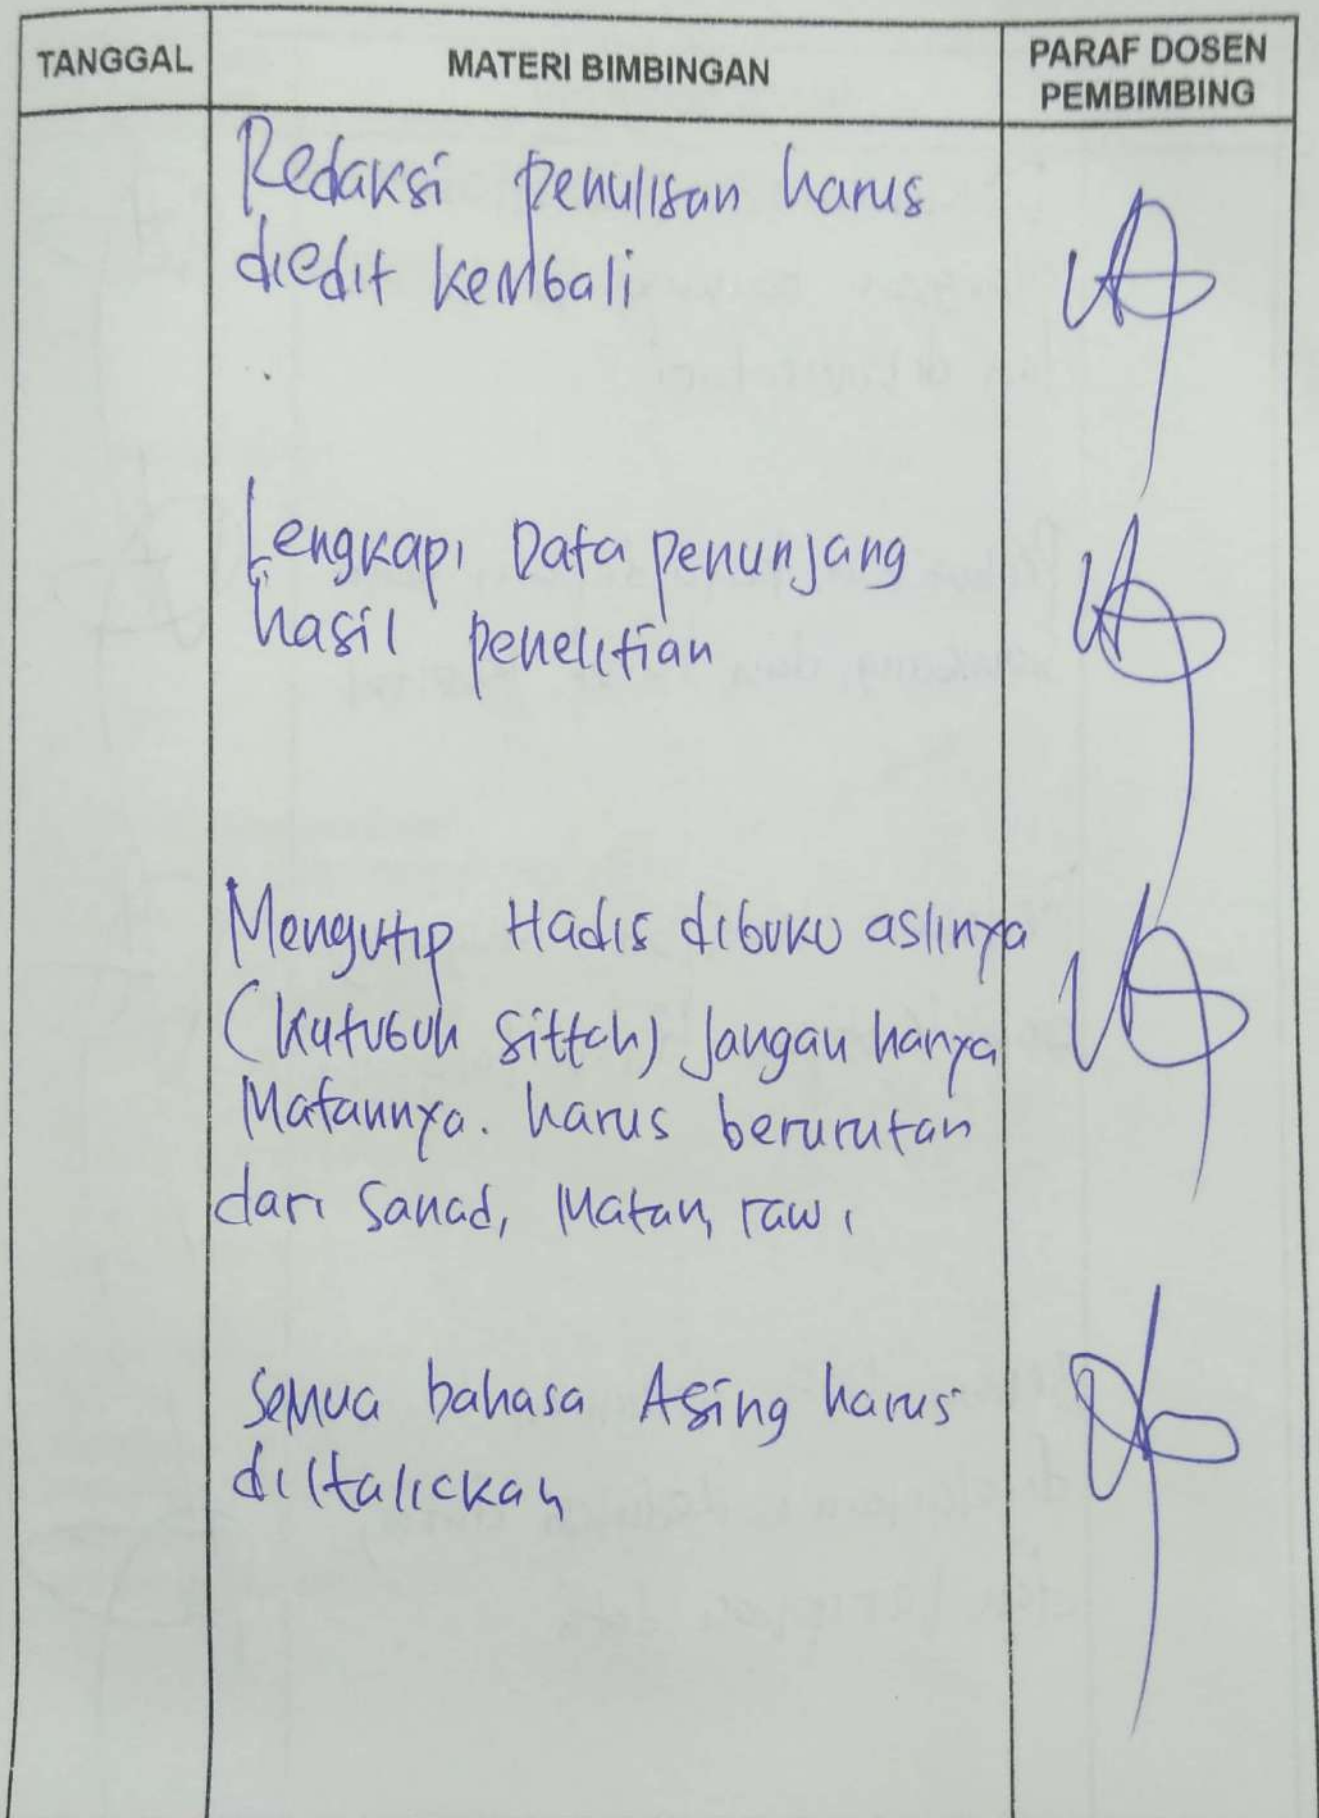 TANGGAL
MATERI BIMBINGAN
PARAF DOSEN
PEMBIMBING
Redaksi penulisan harus
diedit kembali
Lengkapi Data penunjang
hasil penelitian
Mengutip Hadis dibuku aslinya
(Kutubuh Sittah) Jangan hanya
Matannya. harus berurutan
dari Sanad, Matan, rawi
semua bahasa Asing harus
diItalickan